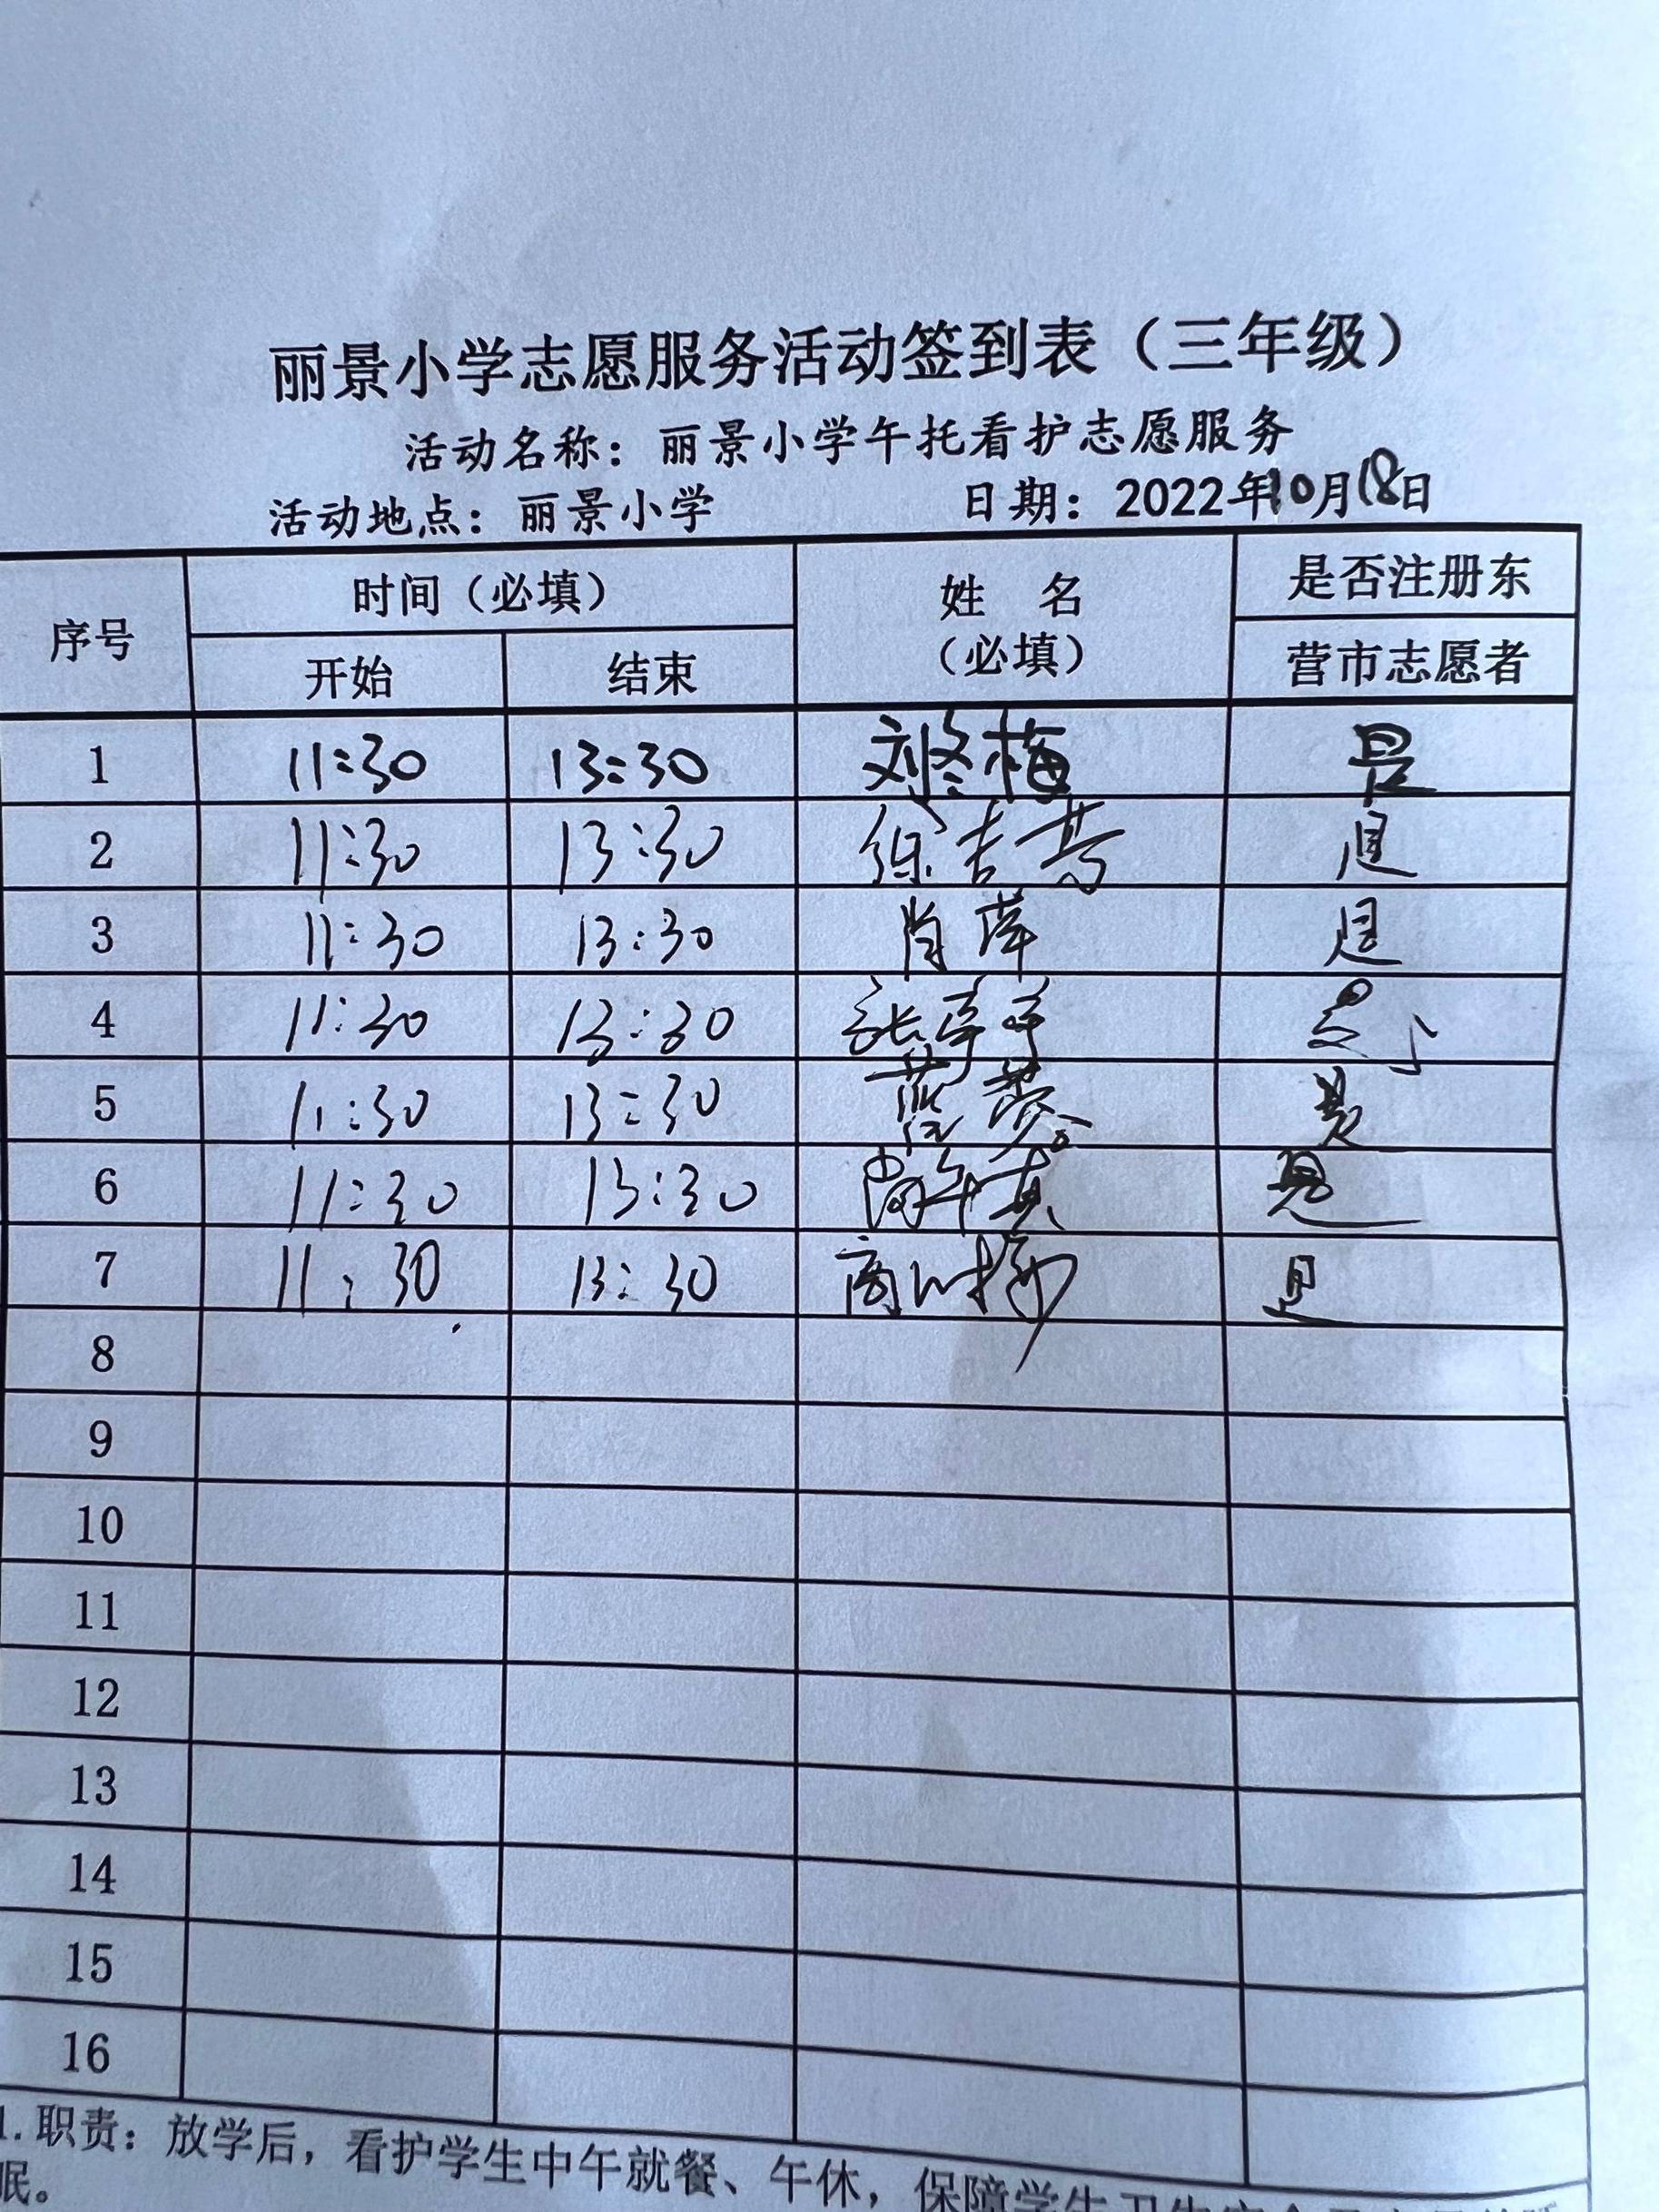 丽景小学志愿服务活动签到表（三年级）
活动名称：丽景小学午托看护志愿服务
活动地点：丽景小学 日期：2022年10月18日
序号 时间（必填） 姓 名 是否注册东
开始 结束 （必填） 营市志愿者
1 11:30 13:30 刘冬梅 是
2 11:30 13:30 徐吉 是
3 11:30 13:30 肖萍 是
4 11:30 13:30 张亭亭 是
5 11:30 13:30 是
6 11:30 13:30 是
7 11:30 13:30 商 是
8
9
10
11
12
13
14
15
16
1.职责：放学后，看护学生中午就餐、午休，保障学生卫生安全
眠。